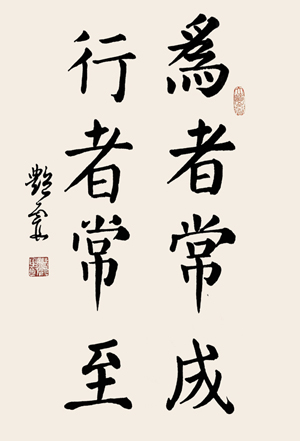 爲者常成
行者常至